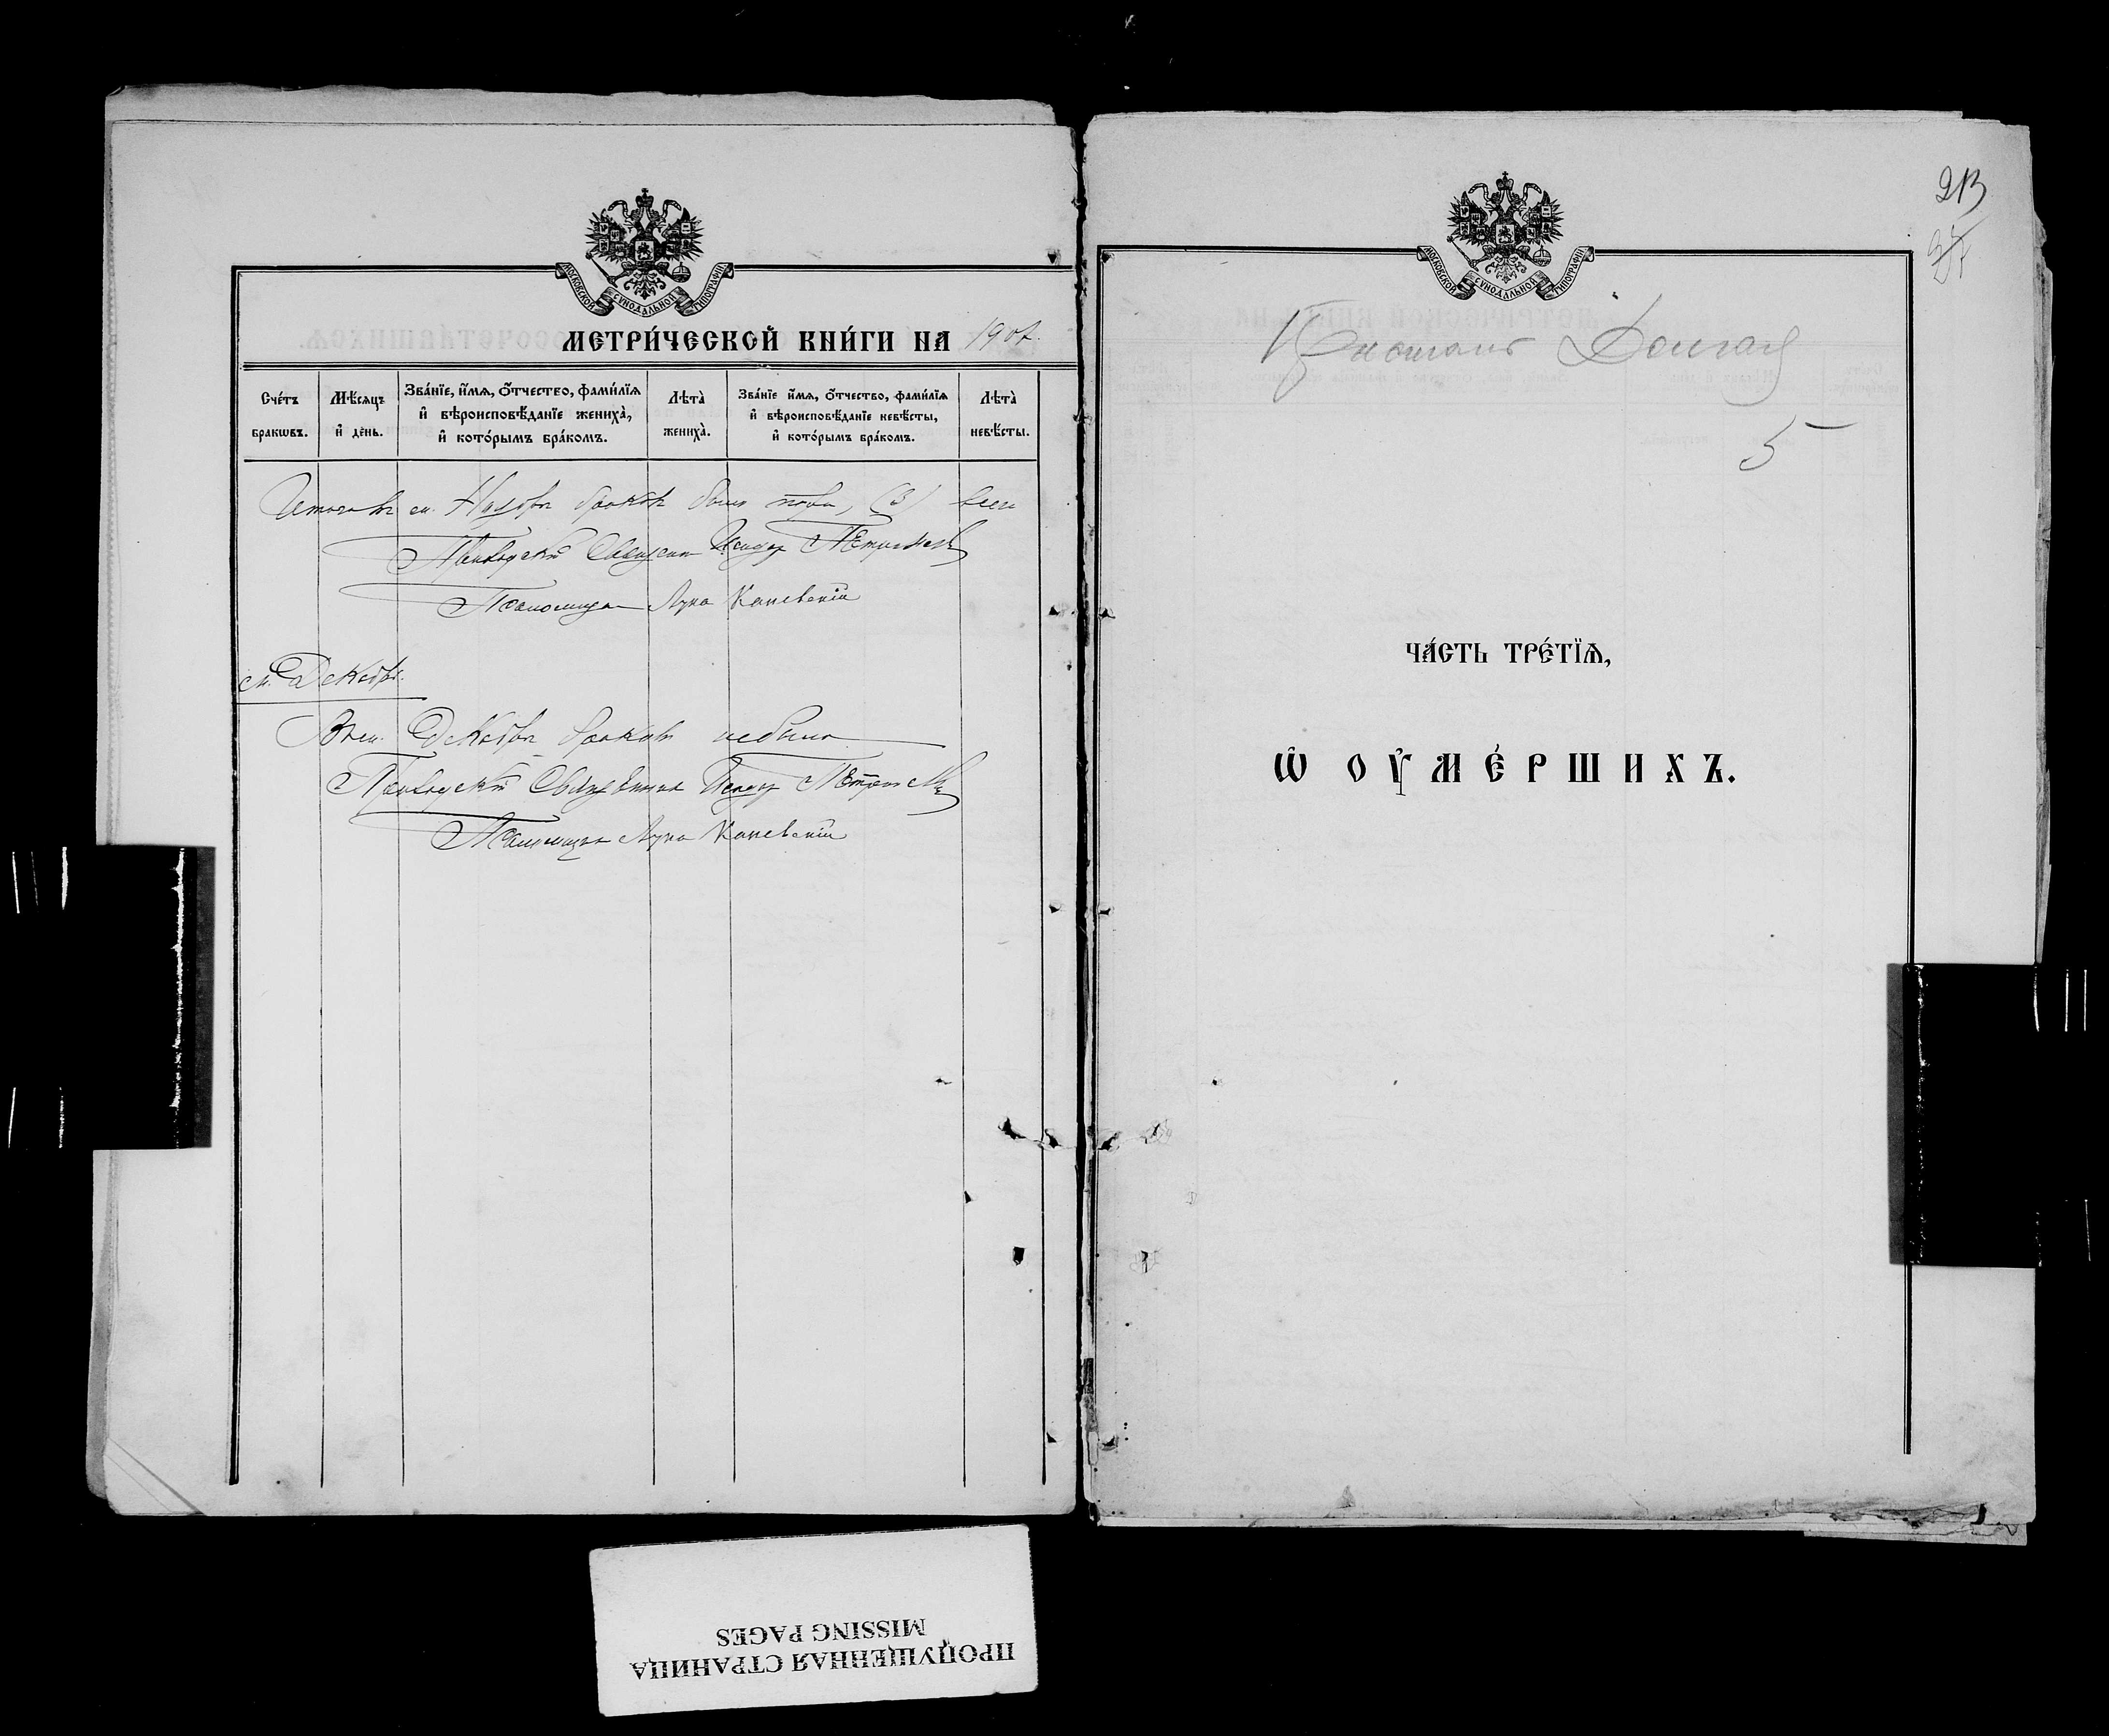 МОСКОВСКОЙ СѴНОДАЛЬНОЙ ТИПОГРАФІИ.
МЕТРИ́ЧЕСКОЙ КНИ́ГИ НА 1907.
Сче́тъ бракѡвъ.
Мѣ́сяцъ и҆ де́нь.
Зва́нїе, и҆́мѧ, ѻ҆́тчество, фами́лїѧ
и҆ вѣроисповѣ́данїе жениха̀,
и҆ кото́рымъ бра́комъ.
Лѣта̀ жениха̀.
Зва́нїе и҆́мѧ, ѻ҆́тчество, фами́лїѧ
и҆ вѣроисповѣ́данїе невѣ́сты,
и҆ кото́рымъ бра́комъ.
Лѣта̀ невѣ́сты.
м. Ноябрѣ браковъ было (3)
Приходскій Священ. Исидор
Псаломщикъ Лука Каневскій
м. Декабрь.
Въ м. Декабрѣ браковъ небыло
Приходскій Священникъ Исидор
Псаломщикъ Лука Каневскій
213
МОСКОВСКОЙ СѴНОДАЛЬНОЙ ТИПОГРАФІИ.
5
ЧА́СТЬ ТРЕ́ТЇѦ,
Ѡ҆ ОУ҆МЕ́РШИХЪ.
ПРОПУЩЕННАЯ СТРАНИЦА
MISSING PAGES